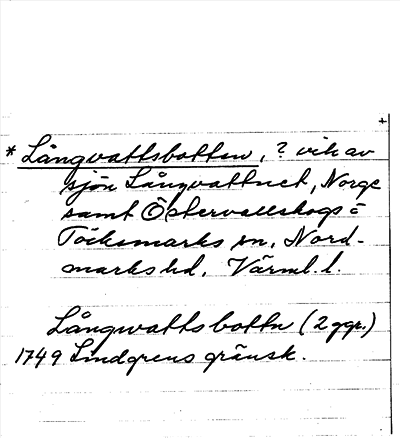 +
* Långvattsbotten, ? vik av
sjön Långvattnet, Norge
samt Östervallskogs o
Töcksmarks sn, Nord-
marks hd, Värml. l.
Långwattsbottn (2 ggr.)
1749 Lindgrens gränsk.